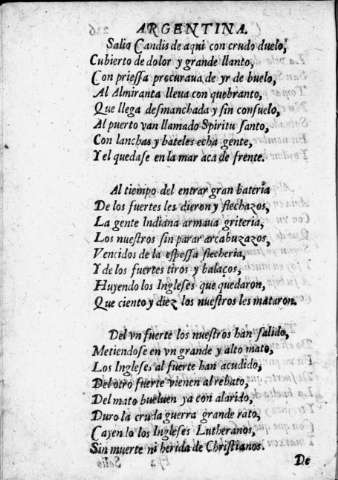 ARGENTINA.
Salio Candis de aqui con crudo duelo,
Cubierto de dolor y grande llanto,
Con priessa procuraua de yr de buelo,
Al Almiranta lleua con quebranto,
Que llega desmanchada y sin consuelo,
Al puerto van llamado Spiritu santo,
Con lanchas y bateles echa gente,
Y el quedase en la mar aca de frente.
Al tiempo del entrar gran bateria
De los fuertes les dieron y flechazos,
La gente Indiana armaua griteria,
Los nuestros sin parar arcabuzazos,
Vencidos de la espessa flecheria,
Y de los fuertes tiros y balaços,
Huyendo los Ingleses que quedaron,
Que ciento y diez los nuestros les mataron.
Del vn fuerte los nuestros han salido,
Metiendose en vn grande y alto mato,
Los Ingleses al fuerte han acudido,
Del otro fuerte vienen al rebato,
Del mato bueluen ya con alarido,
Duro la cruda guerra grande rato,
Cayendo los Ingleses Lutheranos,
Sin muerte ni herida de Christianos.
De